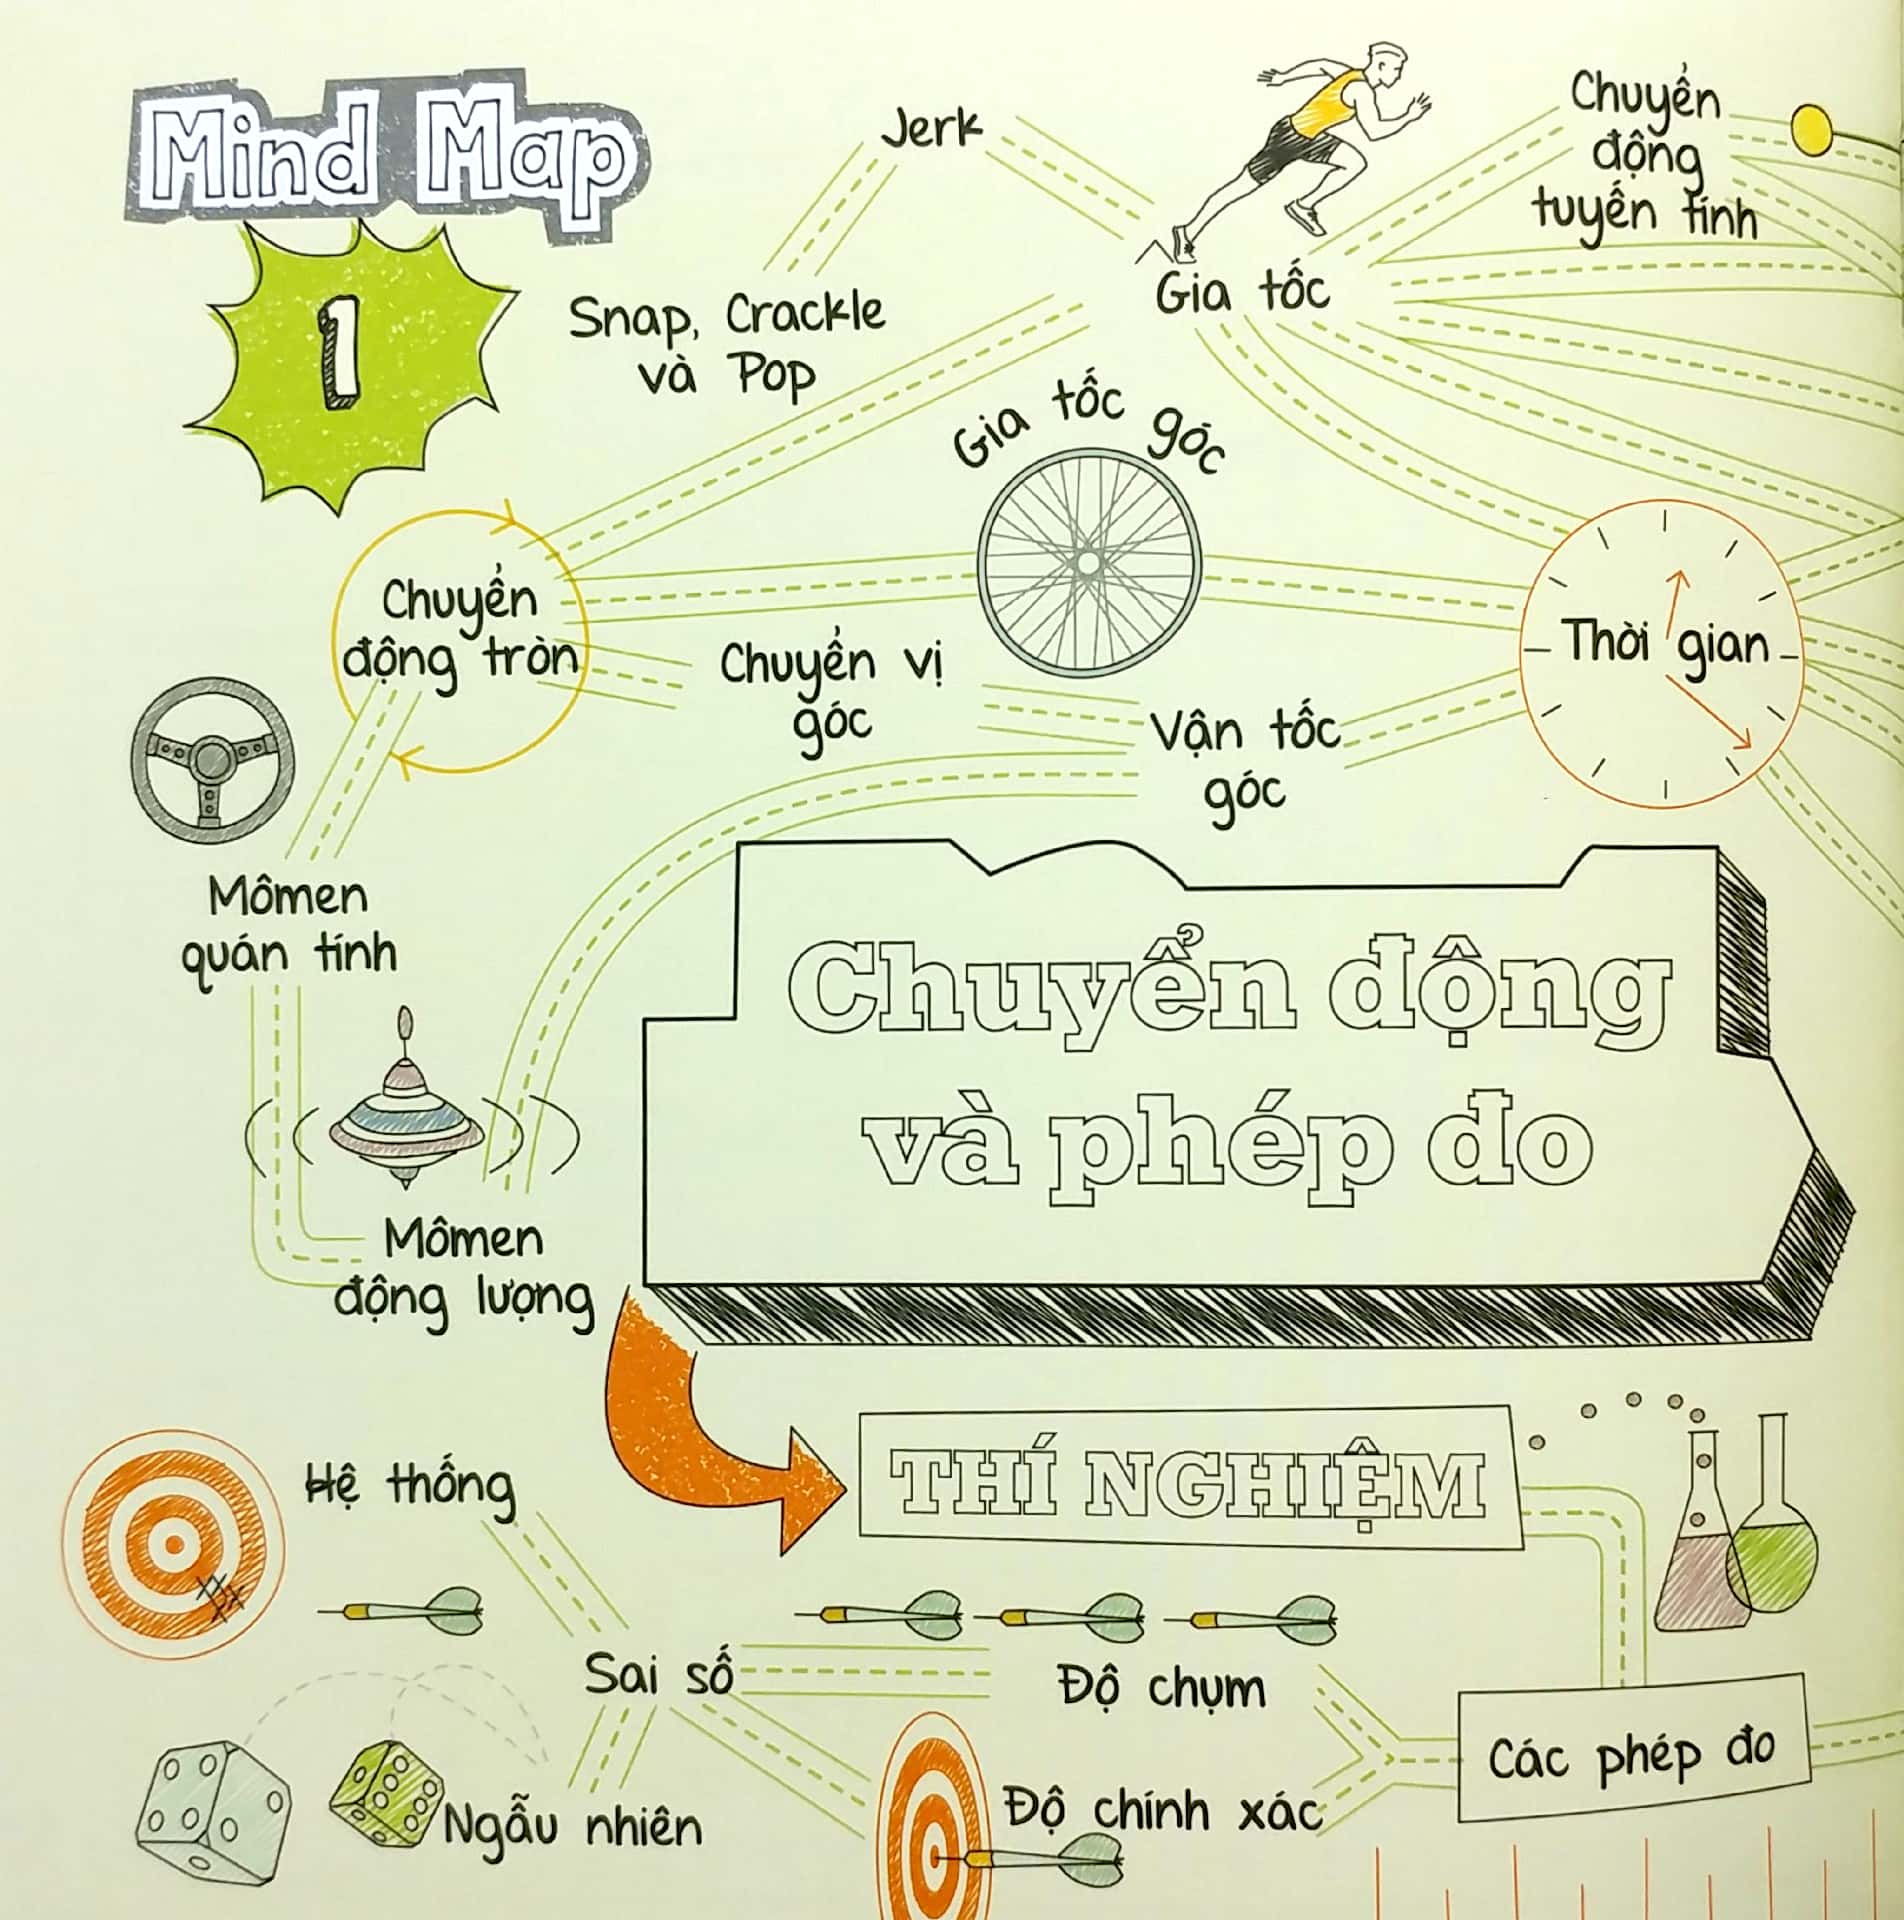 Mind Map
1
Jerk
Chuyển
động
tuyến tính
Snap, Crackle
và Pop
Gia tốc
Gia tốc góc
Chuyển
động tròn
Chuyển vị
góc
Vận tốc
góc
Thời gian
Mômen
quán tính
Chuyển động
và phép đo
Mômen
động lượng
THÍ NGHIỆM
Hệ thống
Sai số
Độ chụm
Các phép đo
Độ chính xác
Ngẫu nhiên